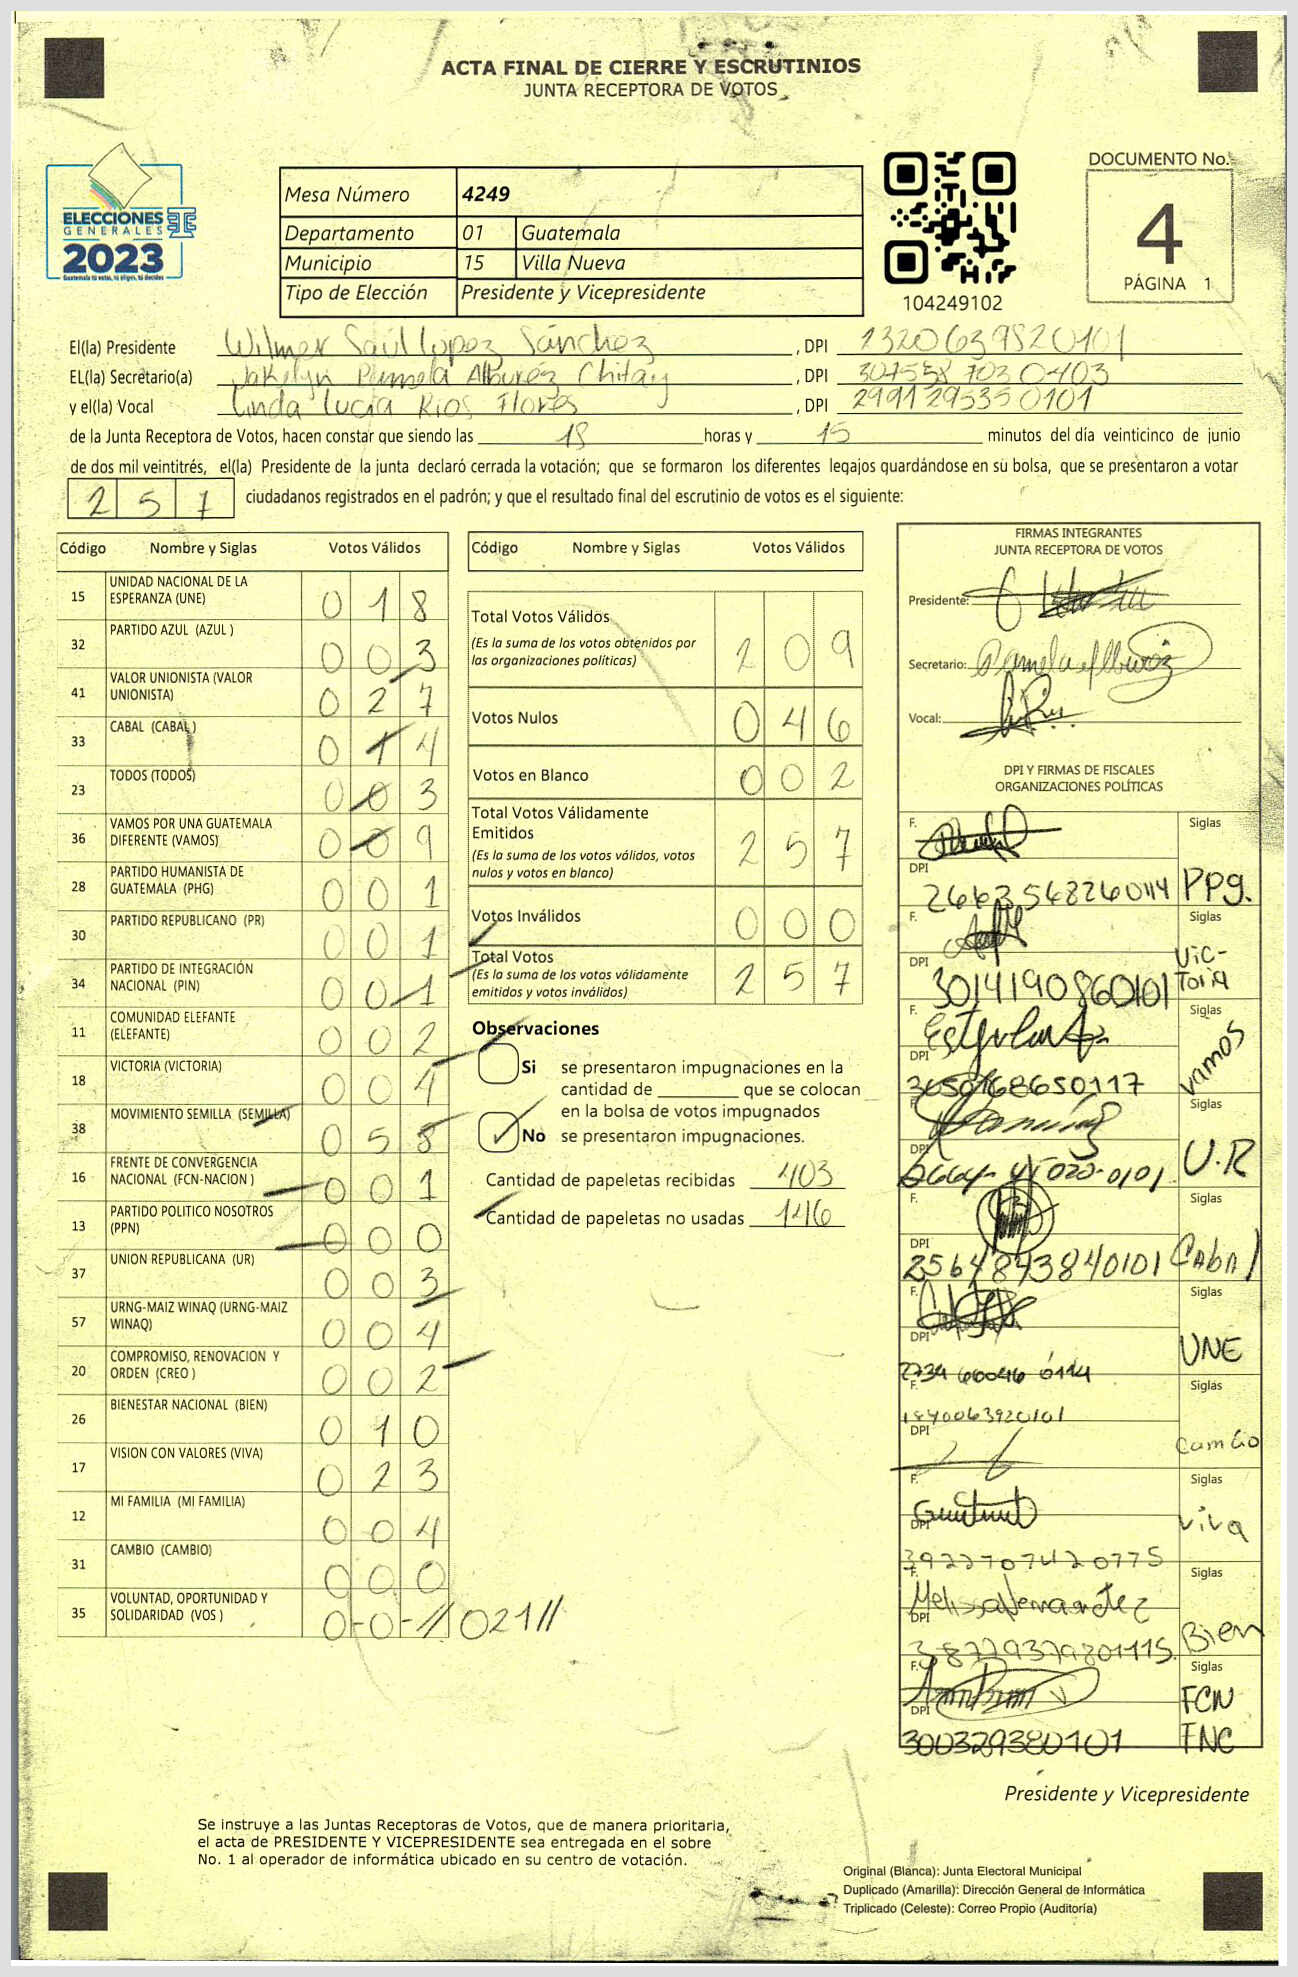 ACTA FINAL DE CIERRE Y ESCRUTINIOS
JUNTA RECEPTORA DE VOTOS
ELECCIONES
GENERALES
2023
Guatemala tú estás, tú eliges, tú decides
Mesa Número 4249
Departamento 01 Guatemala
Municipio 15 Villa Nueva
Tipo de Elección Presidente y Vicepresidente
104249102
DOCUMENTO No.
4
PÁGINA 1
El(la) Presidente Wilmer Saúl López Sánchez, DPI 2320639820101
EL(la) Secretario(a) Jakelyn Pamela Alburez Chitay, DPI 307558 7030403
y el(la) Vocal Linda Lucia Rios Flores, DPI 2991295350101
de la Junta Receptora de Votos, hacen constar que siendo las 18 horas y 15 minutos del día veinticinco de junio
de dos mil veintitrés, el(la) Presidente de la junta declaró cerrada la votación; que se formaron los diferentes legajos guardándose en su bolsa, que se presentaron a votar
257 ciudadanos registrados en el padrón; y que el resultado final del escrutinio de votos es el siguiente:
Código Nombre y Siglas Votos Válidos
15 UNIDAD NACIONAL DE LA ESPERANZA (UNE) 018
32 PARTIDO AZUL (AZUL ) 003
41 VALOR UNIONISTA (VALOR UNIONISTA) 027
33 CABAL (CABAL ) 014
23 TODOS (TODOS) 003
36 VAMOS POR UNA GUATEMALA DIFERENTE (VAMOS) 009
28 PARTIDO HUMANISTA DE GUATEMALA (PHG) 001
30 PARTIDO REPUBLICANO (PR) 001
34 PARTIDO DE INTEGRACIÓN NACIONAL (PIN) 001
11 COMUNIDAD ELEFANTE (ELEFANTE) 002
18 VICTORIA (VICTORIA) 004
38 MOVIMIENTO SEMILLA (SEMILLA) 058
16 FRENTE DE CONVERGENCIA NACIONAL (FCN-NACION ) 001
13 PARTIDO POLITICO NOSOTROS (PPN) 000
37 UNION REPUBLICANA (UR) 003
57 URNG-MAIZ WINAQ (URNG-MAIZ WINAQ) 004
20 COMPROMISO, RENOVACION Y ORDEN (CREO ) 002
26 BIENESTAR NACIONAL (BIEN) 010
17 VISION CON VALORES (VIVA) 023
12 MI FAMILIA (MI FAMILIA) 004
31 CAMBIO (CAMBIO) 000
35 VOLUNTAD, OPORTUNIDAD Y SOLIDARIDAD (VOS ) 0-0-//021//
Código Nombre y Siglas Votos Válidos
Total Votos Válidos 209
(Es la suma de los votos obtenidos por
las organizaciones políticas)
Votos Nulos 046
Votos en Blanco 002
Total Votos Válidamente
Emitidos 257
(Es la suma de los votos válidos, votos
nulos y votos en blanco)
Votos Inválidos 000
Total Votos 257
(Es la suma de los votos válidamente
emitidos y votos inválidos)
Observaciones
Si se presentaron impugnaciones en la
cantidad de ________ que se colocan
en la bolsa de votos impugnados
No se presentaron impugnaciones.
Cantidad de papeletas recibidas 403
Cantidad de papeletas no usadas 146
FIRMAS INTEGRANTES
JUNTA RECEPTORA DE VOTOS
Presidente:
Secretario: Pamela Alburez
Vocal:
DPI Y FIRMAS DE FISCALES
ORGANIZACIONES POLÍTICAS
F. Siglas
DPI 2663548260114 PPg.
F. Siglas
DPI 3014190860101 Victoria
F. Siglas
DPI 3050168650117 Vamos
F. Siglas
DPI U.R
F. Siglas
DPI 2564843840101 CAbAl
F. Siglas
DPI 2734 60046 0114 UNE
F. Siglas
1840063920101
DPI Cambio
F. Siglas
DPI 3922707420775 Viva
F. Siglas
Melissa Hernandez
DPI 38779379801115 Bien
F. Siglas
DPI 300329380101 FCN
FNC
Presidente y Vicepresidente
Se instruye a las Juntas Receptoras de Votos, que de manera prioritaria,
el acta de PRESIDENTE Y VICEPRESIDENTE sea entregada en el sobre
No. 1 al operador de informática ubicado en su centro de votación.
Original (Blanca): Junta Electoral Municipal
Duplicado (Amarilla): Dirección General de Informática
Triplicado (Celeste): Correo Propio (Auditoría)